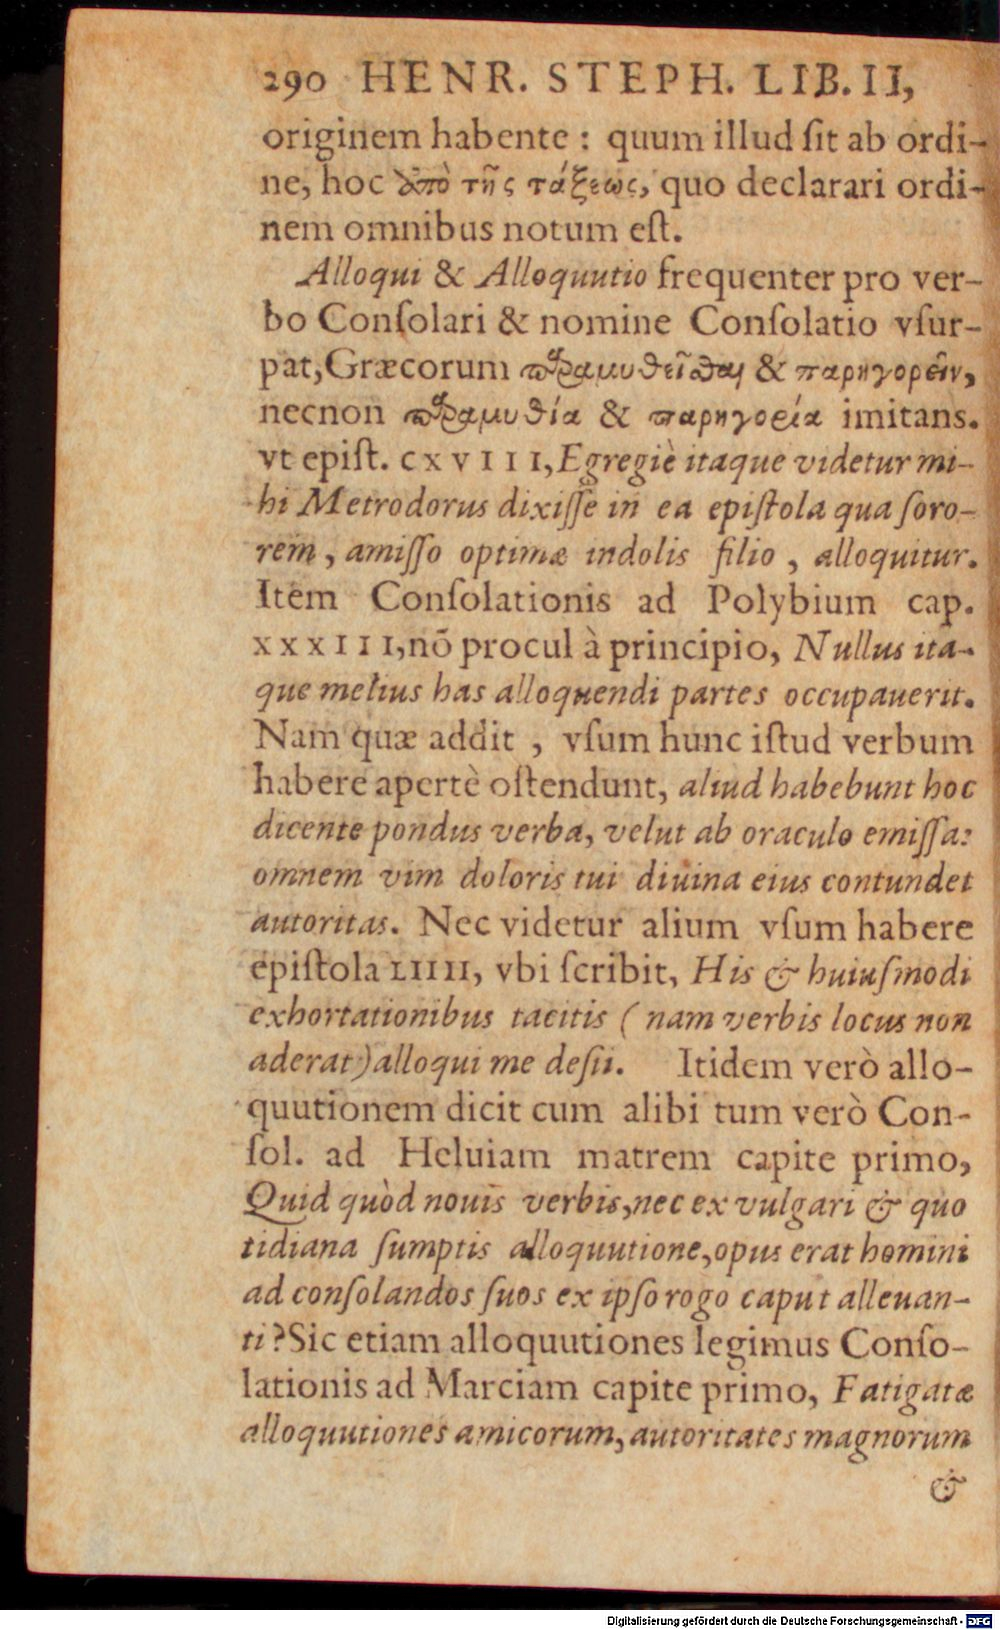 290 HENR. STEPH. LIB. II,
originem habente : quum illud ſit ab ordi-
ne, hoc ἀπὸ τῆς τάξεως, quo declarari ordi-
nem omnibus notum eſt.
Alloqui & Alloquutio frequenter pro ver-
bo Conſolari & nomine Conſolatio vſur-
pat, Græcorum παραμυθεῖσθαι & παρηγορεῖν,
necnon παραμυθία & παρηγορία imitans.
vt epiſt. CXVIII, Egregiè itaque videtur mi-
hi Metrodorus dixiſſe in ea epiſtola qua ſoro-
rem, amiſſo optimæ indolis filio, alloquitur.
Item Conſolationis ad Polybium cap.
XXXIII, nõ procul à principio, Nullus ita-
que melius has alloquendi partes occupauerit.
Nam quæ addit, vſum hunc iſtud verbum
habere apertè oſtendunt, aliud habebunt hoc
dicente pondus verba, velut ab oraculo emiſſa:
omnem vim doloris tui diuina eius contundet
autoritas. Nec videtur alium vſum habere
epiſtola LIIII, vbi ſcribit, His & huiuſmodi
exhortationibus tacitis (nam verbis locus non
aderat) alloqui me deſii. Itidem verò allo-
quutionem dicit cum alibi tum verò Con-
ſol. ad Heluiam matrem capite primo,
Quid quòd nouis verbis, nec ex vulgari & quo
tidiana ſumptis alloquutione, opus erat homini
ad conſolandos ſuos ex ipſo rogo caput alleuan-
ti? Sic etiam alloquutiones legimus Conſo-
lationis ad Marciam capite primo, Fatigatæ
alloquutiones amicorum, autoritates magnorum
&
Digitalisierung gefördert durch die Deutsche Forschungsgemeinschaft - DFG